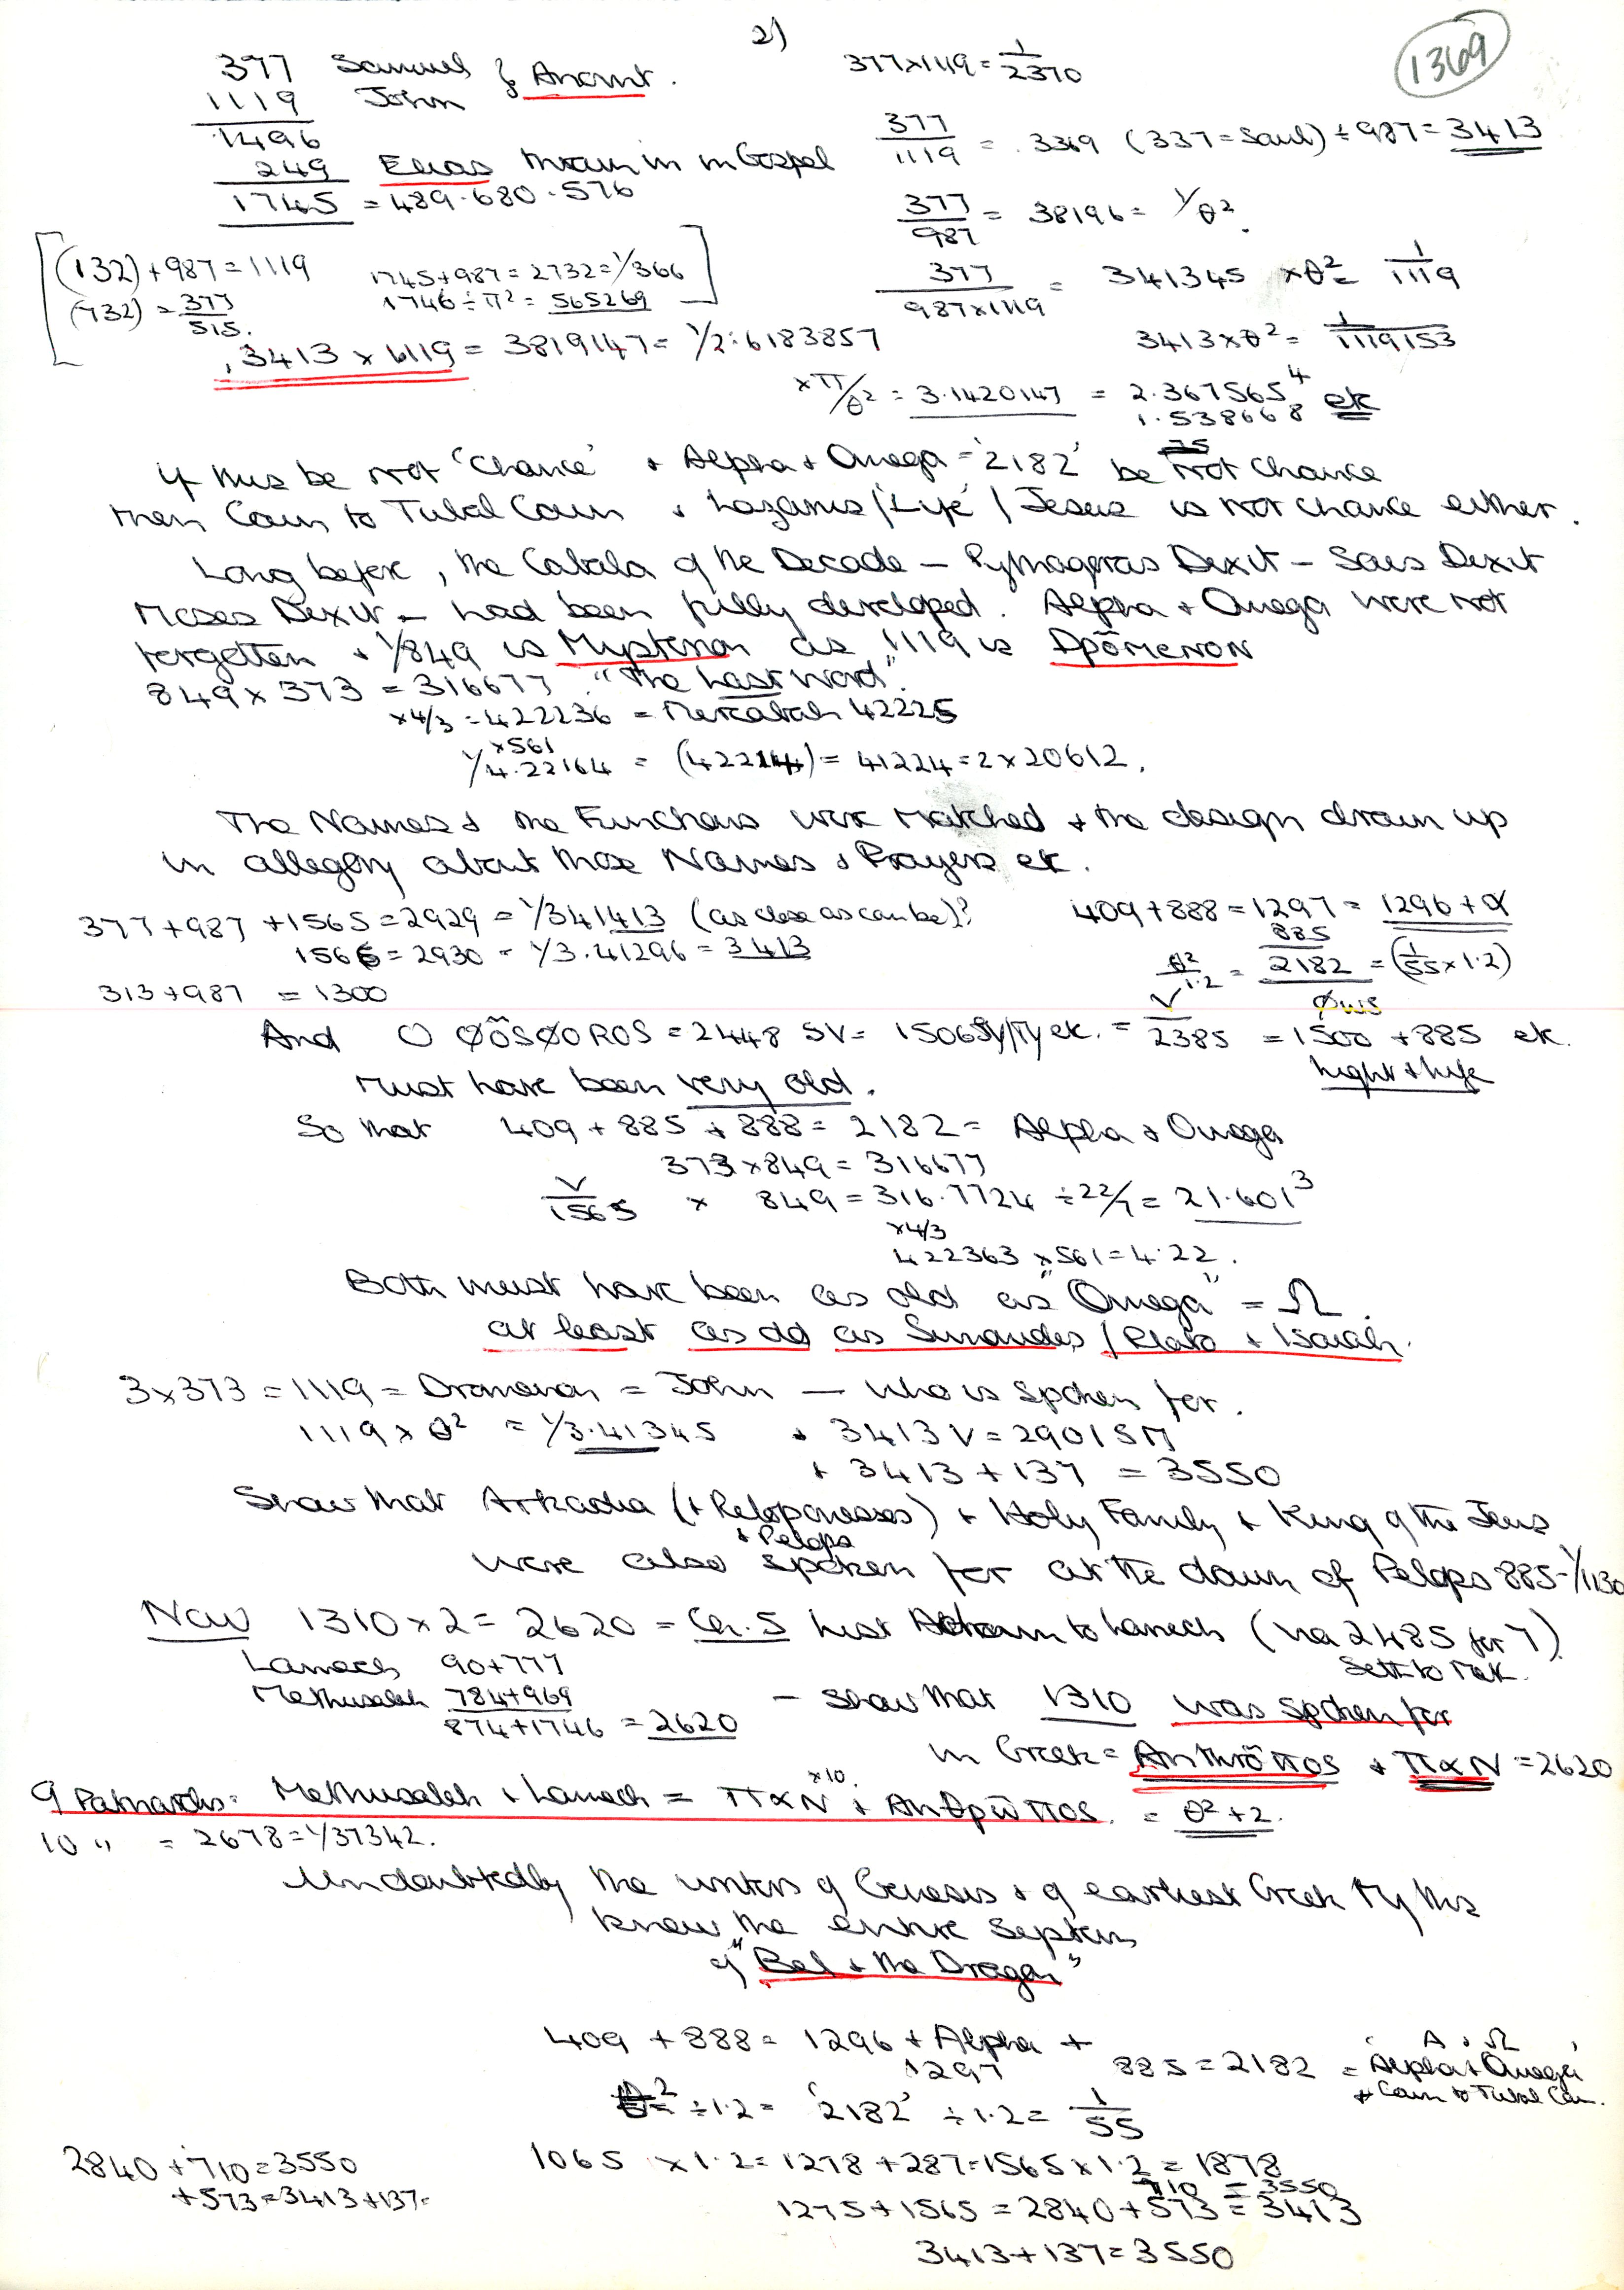 2)
1369
377 Samuel
1119 John } Ancnt.
1496
249 Elias thrown in in Gospel
1745 = 489.680.576
377x1119 = 1/2370
377/1119 = .3369 (337=Saul) ÷987= 3413
377/987 = 38196 = 1/θ².
377/987x1119 = 341345 xθ²= 1/1119
3413xθ²= 1/1119153
(132)+987=1119
(732) = 377/515.
1745+987=2732=1/366
1746÷π²= 565269
.3413 x 1119 = 3819147= 1/2.6183857
xπ/θ² = 3.1420147 = 2.367565⁴ etc
1.538668
If this be not 'Chance' + Alpha + Omega = '2182' be not chance
then Cain to Tubal Cain + Lazarus/'Life'/Jesus is not chance either.
Long before, the Cabala of the Decade – Pythagoras Dixit – Sais Dixit
Moses Dixit – had been fully developed. Alpha + Omega were not
forgotten + 1/849 is Mysterion as 1119 is Drōmenon
849x373 = 316677 . "The Last Word".
x4/3 = 422236 = Mercabah 42225
x561
1/4.22164 = (42214) = 41224=2x20612.
The Names & the Functions were Matched + the design drawn up
in allegory about those Names & Prayers etc.
377+987+1565=2929 = 1/341413 (as close as can be)?
1566=2930 = 1/3.41296 = 3413
313+987 = 1300
409+888=1297= 1296+α
885
θ²/1.2 = 2182 = (1/55 x1.2)
And O φōsφoros = 2448 SV= = V/2385 = 1500 +885 etc.
φws
Light + Life
Must have been very old.
So that 409+885+888= 2182= Alpha & Omega
373x849=316677
V/1565 x 849=316.7724 ÷22/7= 21.601³
x4/3
422363 x561=4.22.
Both must have been as old as "Omega" = Ω.
at least as old as Simonides/Plato + Isaiah.
3x373=1119= Dromenon = John – who is spoken for.
1119xθ² = 1/3.41345 + 3413V=2901SM
+ 3413+137 = 3550
Show that Arkadia (+Peloponesses) + Holy Family + King of the Jews
+ Pelops
were also spoken for at the dawn of Pelops 885-1/1130
Now 1310x2= 2620 = Ch.5 last Adam to Lamech (via 2485 for 7)
Seth to Met.
Lamech 90+777
Methuselah 784+969
874+1746 =2620
– show that 1310 was spoken for
in Greek = Anthrōπos + παN =2620
9 Patriarchs. Methuselah + Lamech = παN x10 + Anθρωπos. = θ²+2.
10 " = 2678=1/37342.
Undoubtedly the writers of Genesis & of earliest Greek Myths
knew the entire System
of "Bel & the Dragon"
409 +888= 1296 + Alpha +
1297 885=2182 = 'Alpha + Omega'
A & Ω
+ Cain to Tubal Cain.
θ² ÷1.2= '2182' ÷1.2= 1/55
1065 x1.2=1278+287=1565x1.2=1878
710 =3550
1275+1565=2840+573=3413
3413+137=3550
2840+710=3550
+573=3413+137=